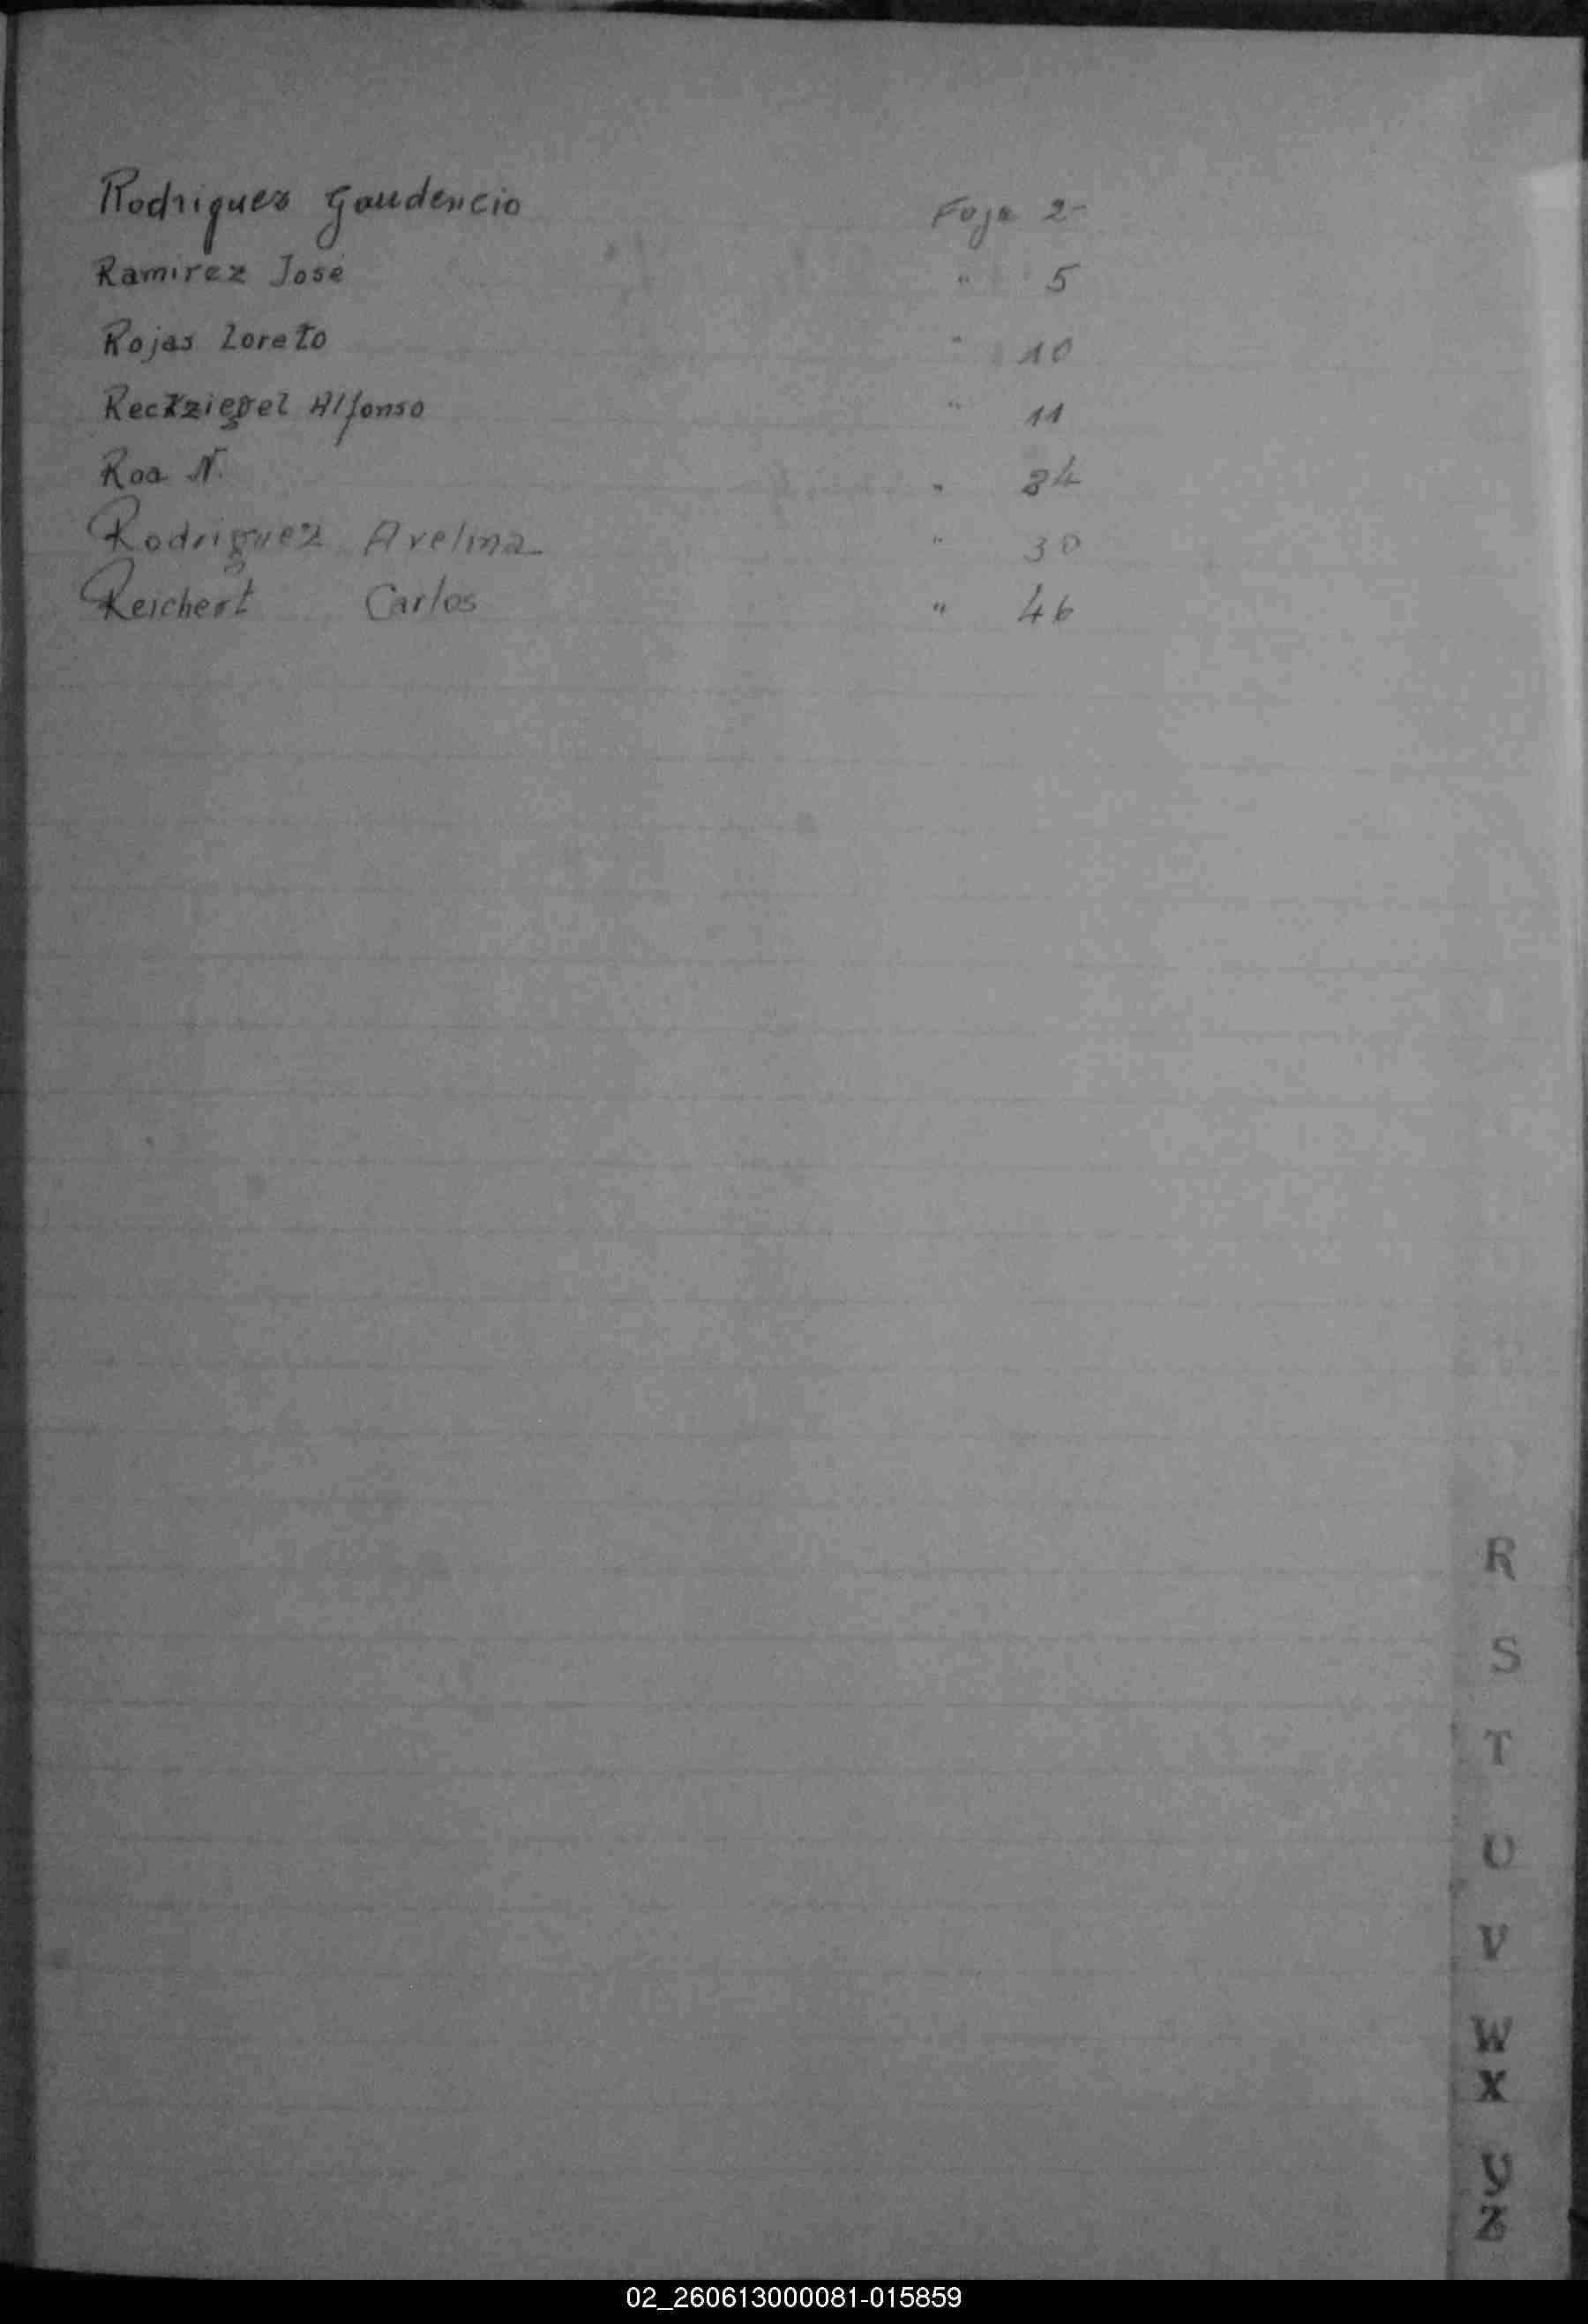 Rodriguez Gaudencio Foja 2-
Ramirez José " 5
Rojas Loreto " 10
Reckziegel Alfonso " 11
Roa N. " 24
Rodriguez Avelina " 30
Reichert Carlos " 46
R
S
T
U
V
W
X
Y
Z
02_260613000081-015859